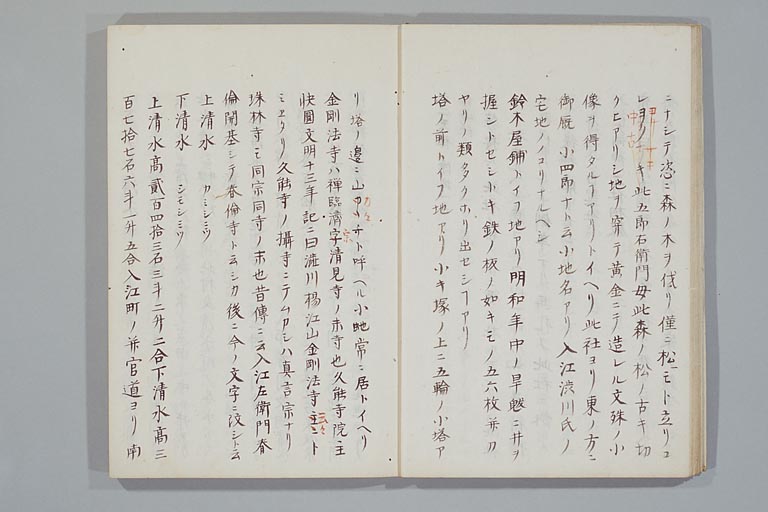 ニナシテ恣ニ森ノ木ヲ伐リ僅ニ松一モト立リコ
レヨノ此五郎右衛門母此森ノ松ノ古キ切
クヒアリシ地ヲ穿テ黄金ニテ造レル文殊ノ小
像ヲ得タルアリトイヘリ此社ヨリ東ノ方ニ
御厩 小四郎ナト云小地名アリ入江渋川氏ノ
宅地ノノコリナルヘシ
鈴木屋鋪トイフ地アリ明和年中ノ旱魃ニ井ヲ
握シトセシトキ鉄ノ板ノ如キモノ五六枚并刀
ヤリノ類多クホリ出セシアリ
塔ノ前トイフ地アリ小キ塚ノ上ニ五輪ノ小塔ア
リ塔ノ邊ニ山チト呼ヘル小地常ニ居トイヘリ
金剛法寺ハ禅臨濟宗清見寺ノ末寺也久能寺院主
快圓文明十三年記ニ曰澁川楊江山金剛法寺ト
ミエタリ久能寺ノ攝寺ニテムカシハ真言宗ナリ
珠林寺モ同宗同寺ノ末也昔傳ニ云入江左衛門春
倫開基シテ春倫寺ト云シカ後ニ今ノ文字ニ改シト云
上清水 カミシミツ
下清水 シモシミツ
上清水高貳百四拾三石三斗二升二合下清水高三
百七拾七石六斗一升五合入江町ノ并官道ヨリノ南